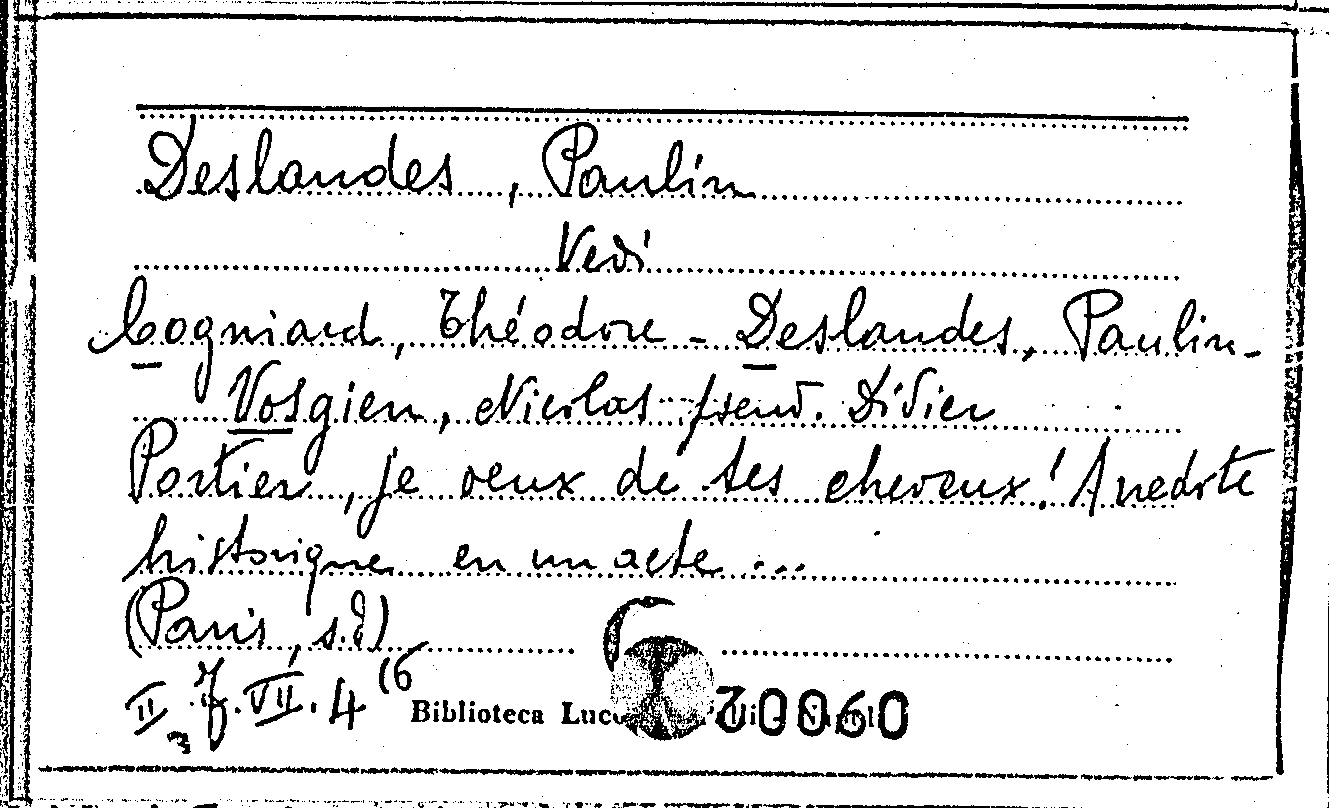 Deslandes, Paulin
Vedi
Cogniard, Théodore - Deslandes, Paulin -
Vosgien, Nicolas pseud. Didier
Portier, je veux de tes cheveux! Anedote
historique en un acte ...
(Paris, s.d)
II. 7. VII. 4 (6
Biblioteca Luc
20060